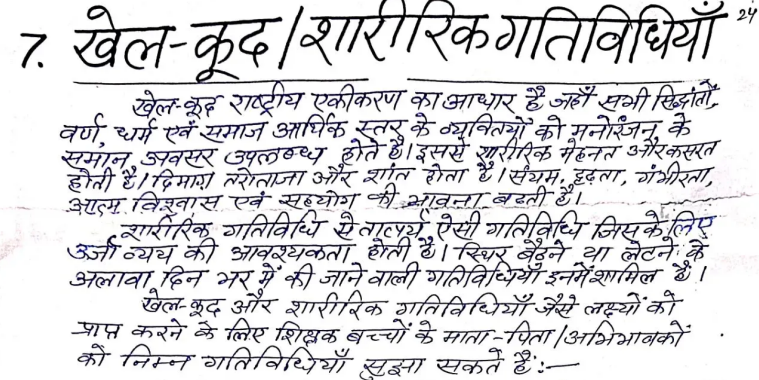 24
7. खेल-कूद/शारीरिक गतिविधियाँ
खेल-कूद राष्ट्रीय एकीकरण का आधार है जहाँ सभी सिद्धांतों,
वर्ण, धर्म एवं समाज आर्थिक स्तर के व्यक्तियों को मनोरंजन के
समान अवसर उपलब्ध होते हैं। इससे शारीरिक मेहनत और कसरत
होती है। दिमाग़ तरोताजा और शांत होता है। संयम, दृढ़ता, गंभीरता,
आत्म विश्वास एवं सहयोग की भावना बढ़ती है।
शारीरिक गतिविधि से तात्पर्य ऐसी गतिविधि जिसके लिए
उर्जा व्यय की आवश्यकता होती है। स्थिर बैठने या लेटने के
अलावा दिन भर में की जाने वाली गतिविधियाँ इनमें शामिल हैं।
खेल-कूद और शारीरिक गतिविधियाँ जैसे लक्ष्यों को
प्राप्त करने के लिए शिक्षक बच्चों के माता-पिता/अभिभावकों
को निम्न गतिविधियाँ सुझा सकते हैं:—